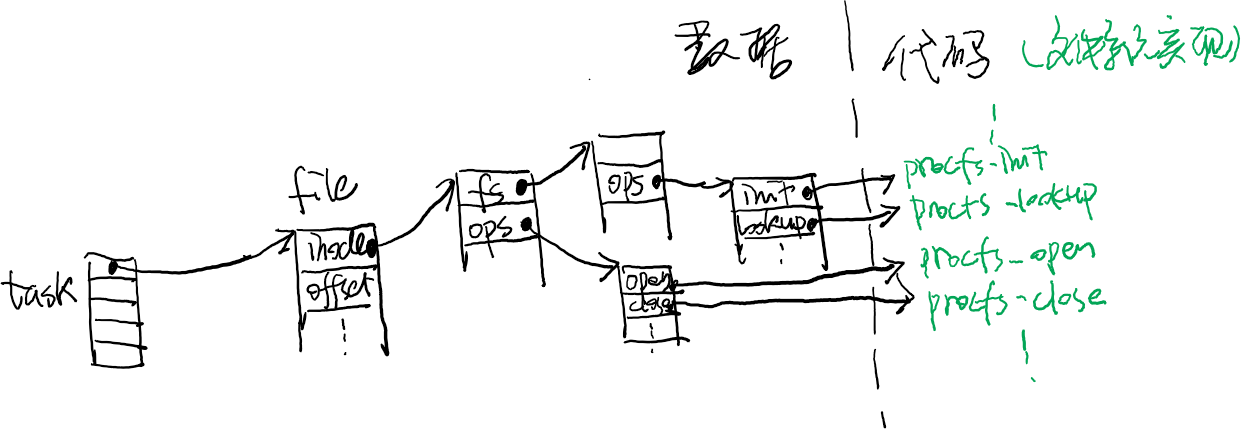 数据
代码 (文件系统实现)
task
file
inode
offset
fs
ops
ops
init
lookup
open
close
procfs-init
procfs-lookup
procfs_open
procfs-close